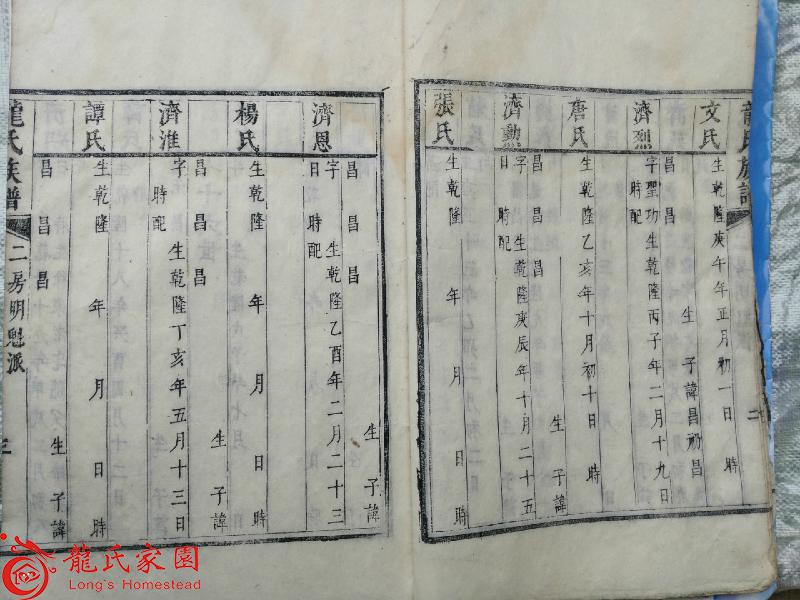 龍氏族譜
二
文氏
生乾隆庚午年正月初一日 時
生 子諱昌礽昌
昌 昌 昌
濟烈
字聖功生乾隆丙子年二月十九日
時配
唐氏
生乾隆乙亥年十月初十日 時
生 子諱
昌 昌 昌
濟勲
字 生乾隆庚辰年十月二十五
日 時配
張氏
生乾隆 年 月 日 時
生 子諱
昌 昌 昌
濟恩
字 生乾隆乙酉年二月二十三
日 時配
楊氏
生乾隆 年 月 日 時
生 子諱
昌 昌 昌
濟淮
字 生乾隆丁亥年五月十三日
時配
譚氏
生乾隆 年 月 日 時
生 子諱
昌 昌 昌
龍氏族譜
二房明魁派
三
龍氏家園
Long's Homestead